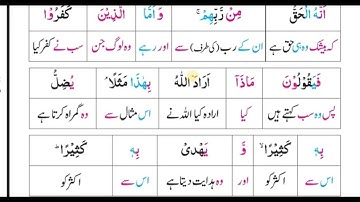 اَنَّهُ الْحَقُّ مِنْ رَّبِّهِمْ ۚ وَ اَمَّا الَّذِيْنَ كَفَرُوْا
کہ بیشک وہ ہی حق ہے ان کے رب (کی طرف) سے اور رہے وہ لوگ جن سب نے کفر کیا
فَيَقُوْلُوْنَ مَاذَاۤ اَرَادَ اللّٰهُ بِهٰذَا مَثَلًا ۘ يُضِلُّ
پس وہ سب کہتے ہیں کیا ارادہ کیا اللہ نے اس مثال سے وہ گمراہ کرتا ہے
بِهٖ كَثِيْرًا ۙ وَّ يَهْدِيْ بِهٖ كَثِيْرًا ؕ
اس سے اکثر کو اور وہ ہدایت دیتا ہے اس سے اکثر کو